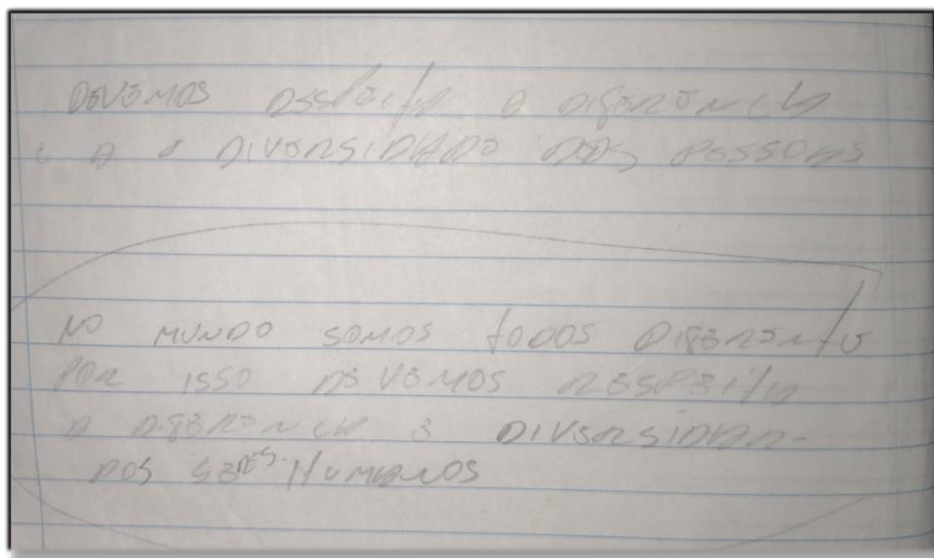 DEVEMOS RESPEITA A DIFERENCIA
E A A DIVERSIDADE DAS PESSOAS
NO MUNDO SOMOS TODOS DIFERENTE
POR ISSO DEVEMOS RESPEITA
A DIFERENCIA E DIVERSIDADE
DOS SERES HUMANOS